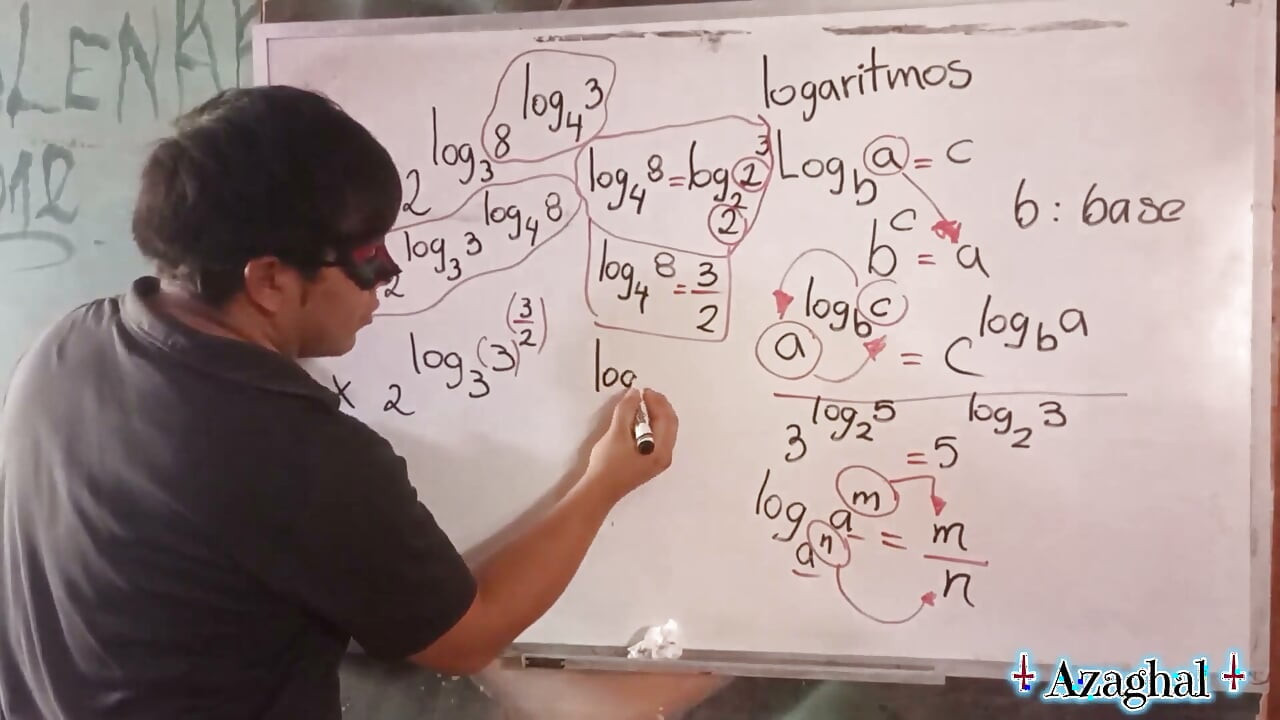 logaritmos
2^{log_3 8^{log_4 3}}
log_4 8 = log_{2^2} 2^3
Log_b a = c
b : base
b^c = a
2^{log_3 3^{log_4 8}}
log_4 8 = 3/2
a^{log_b c} = c^{log_b a}
x 2^{log_3 (3)^{(3/2)}}
log
3^{log_2 5} = 5^{log_2 3}
log_{a^n} a^m = m/n
Azaghal